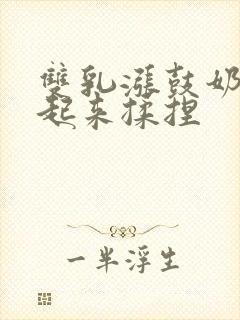 雙乳漲鼓奶
起来揉捏
一半浮生